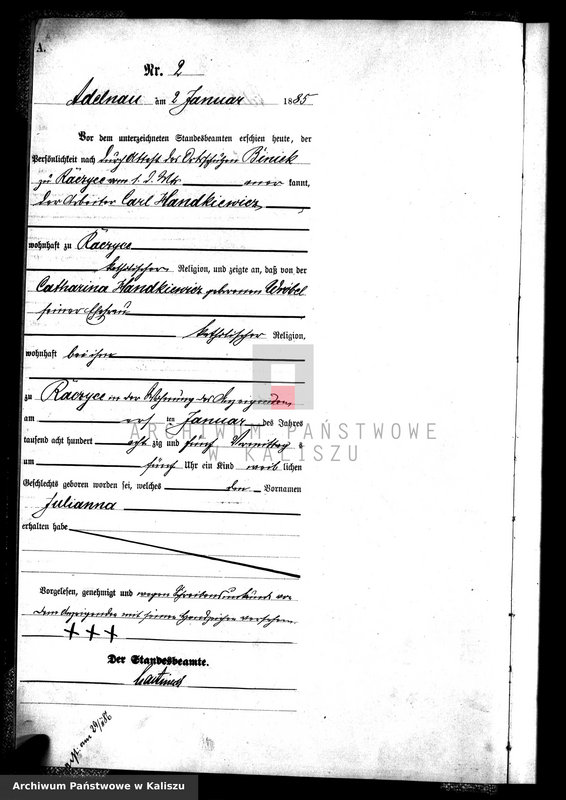 A.
Nr. 2
Adelnau am 2 Januar 1885
Vor dem unterzeichneten Standesbeamten erschien heute, der
Persönlichkeit nach durch Attest des Ortsschulzen Biniek
zu Räczyce vom 1. d. Mts anerkannt,
der Arbeiter Carl Handkiewicz
wohnhaft zu Räczyce
katholischer Religion, und zeigte an, daß von der
Catharina Handkiewicz geborenen Wróbel
seiner Ehefrau
katholischer Religion,
wohnhaft bei ihm
zu Räczyce in der Wohnung des Anzeigenden
am ersten Januar des Jahres
tausend acht hundert achtzig und fünf Vormittag s
um fünf Uhr ein Kind weiblichen
Geschlechts geboren worden sei, welches den Vornamen
Julianna
erhalten habe
Vorgelesen, genehmigt und wegen Schreibensunkunde von
dem Anzeigenden mit seinem Handzeichen versehen.
+ + +
Der Standesbeamte.
ARCHIWUM PAŃSTWOWE
W KALISZU
Archiwum Państwowe w Kaliszu